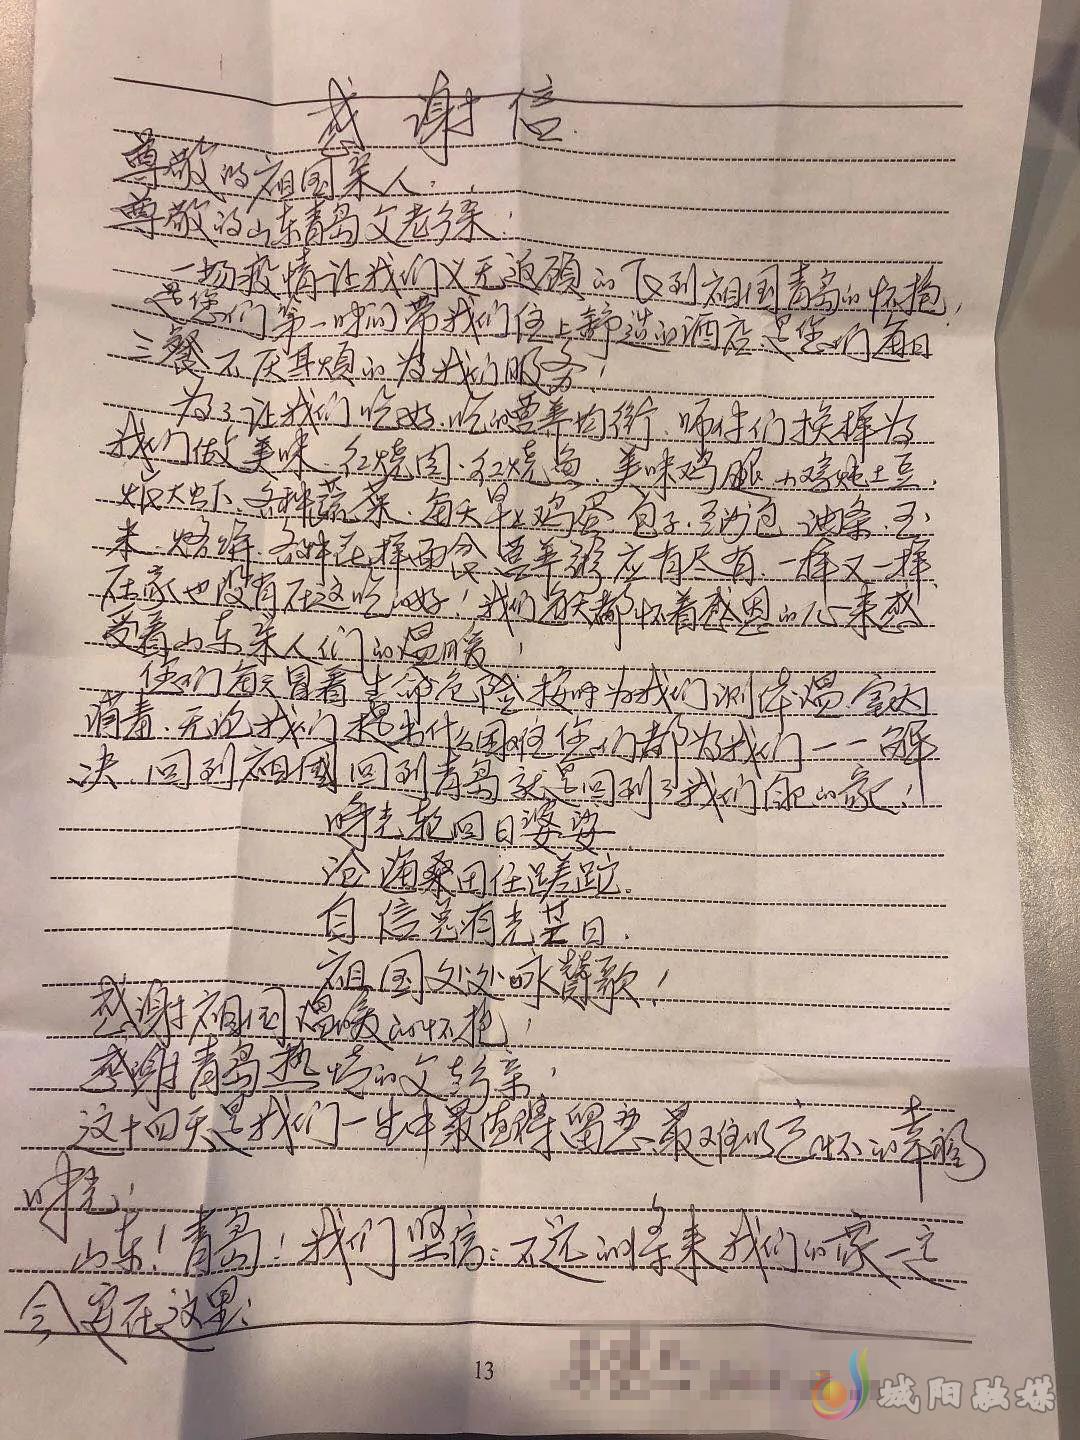 感谢信
尊敬的祖国亲人：
尊敬的山东青岛父老乡亲：
一场疫情让我们义无返顾的飞到祖国青岛的怀抱，
是您们第一时间带我们住上舒适的酒店，是您们每日
三餐不厌其烦的为我们服务！
为了让我们吃好、吃的营养均衡，师傅们换样为
我们做美味、红烧肉、红烧鱼、美味鸡腿、小鸡炖土豆、
大虾、各种蔬菜、每天早上鸡蛋、包子、豆沙包、油条、玉
米、烙饼、各种花样面食、营养粥应有尽有，一样又一样，
在家也没有在这吃的好！我们每天都怀着感恩的心来感
受着山东亲人们的温暖！
您们每天冒着生命危险按时为我们测体温、室内
消毒、无论我们提出什么困难您们都为我们一一解
决，回到祖国回到青岛就是回到了我们自己的家！
时光轮回日婆娑
沧海桑田任蹉跎，
自信总有光芒日，
祖国处处咏赞歌！
感谢祖国温暖的怀抱！
感谢青岛热情的父老乡亲！
这十四天是我们一生中最值得留恋、最难以忘怀的幸福
时光！
山东！青岛！我们坚信：不远的将来我们的家一定
会安在这里！
13
城阳融媒